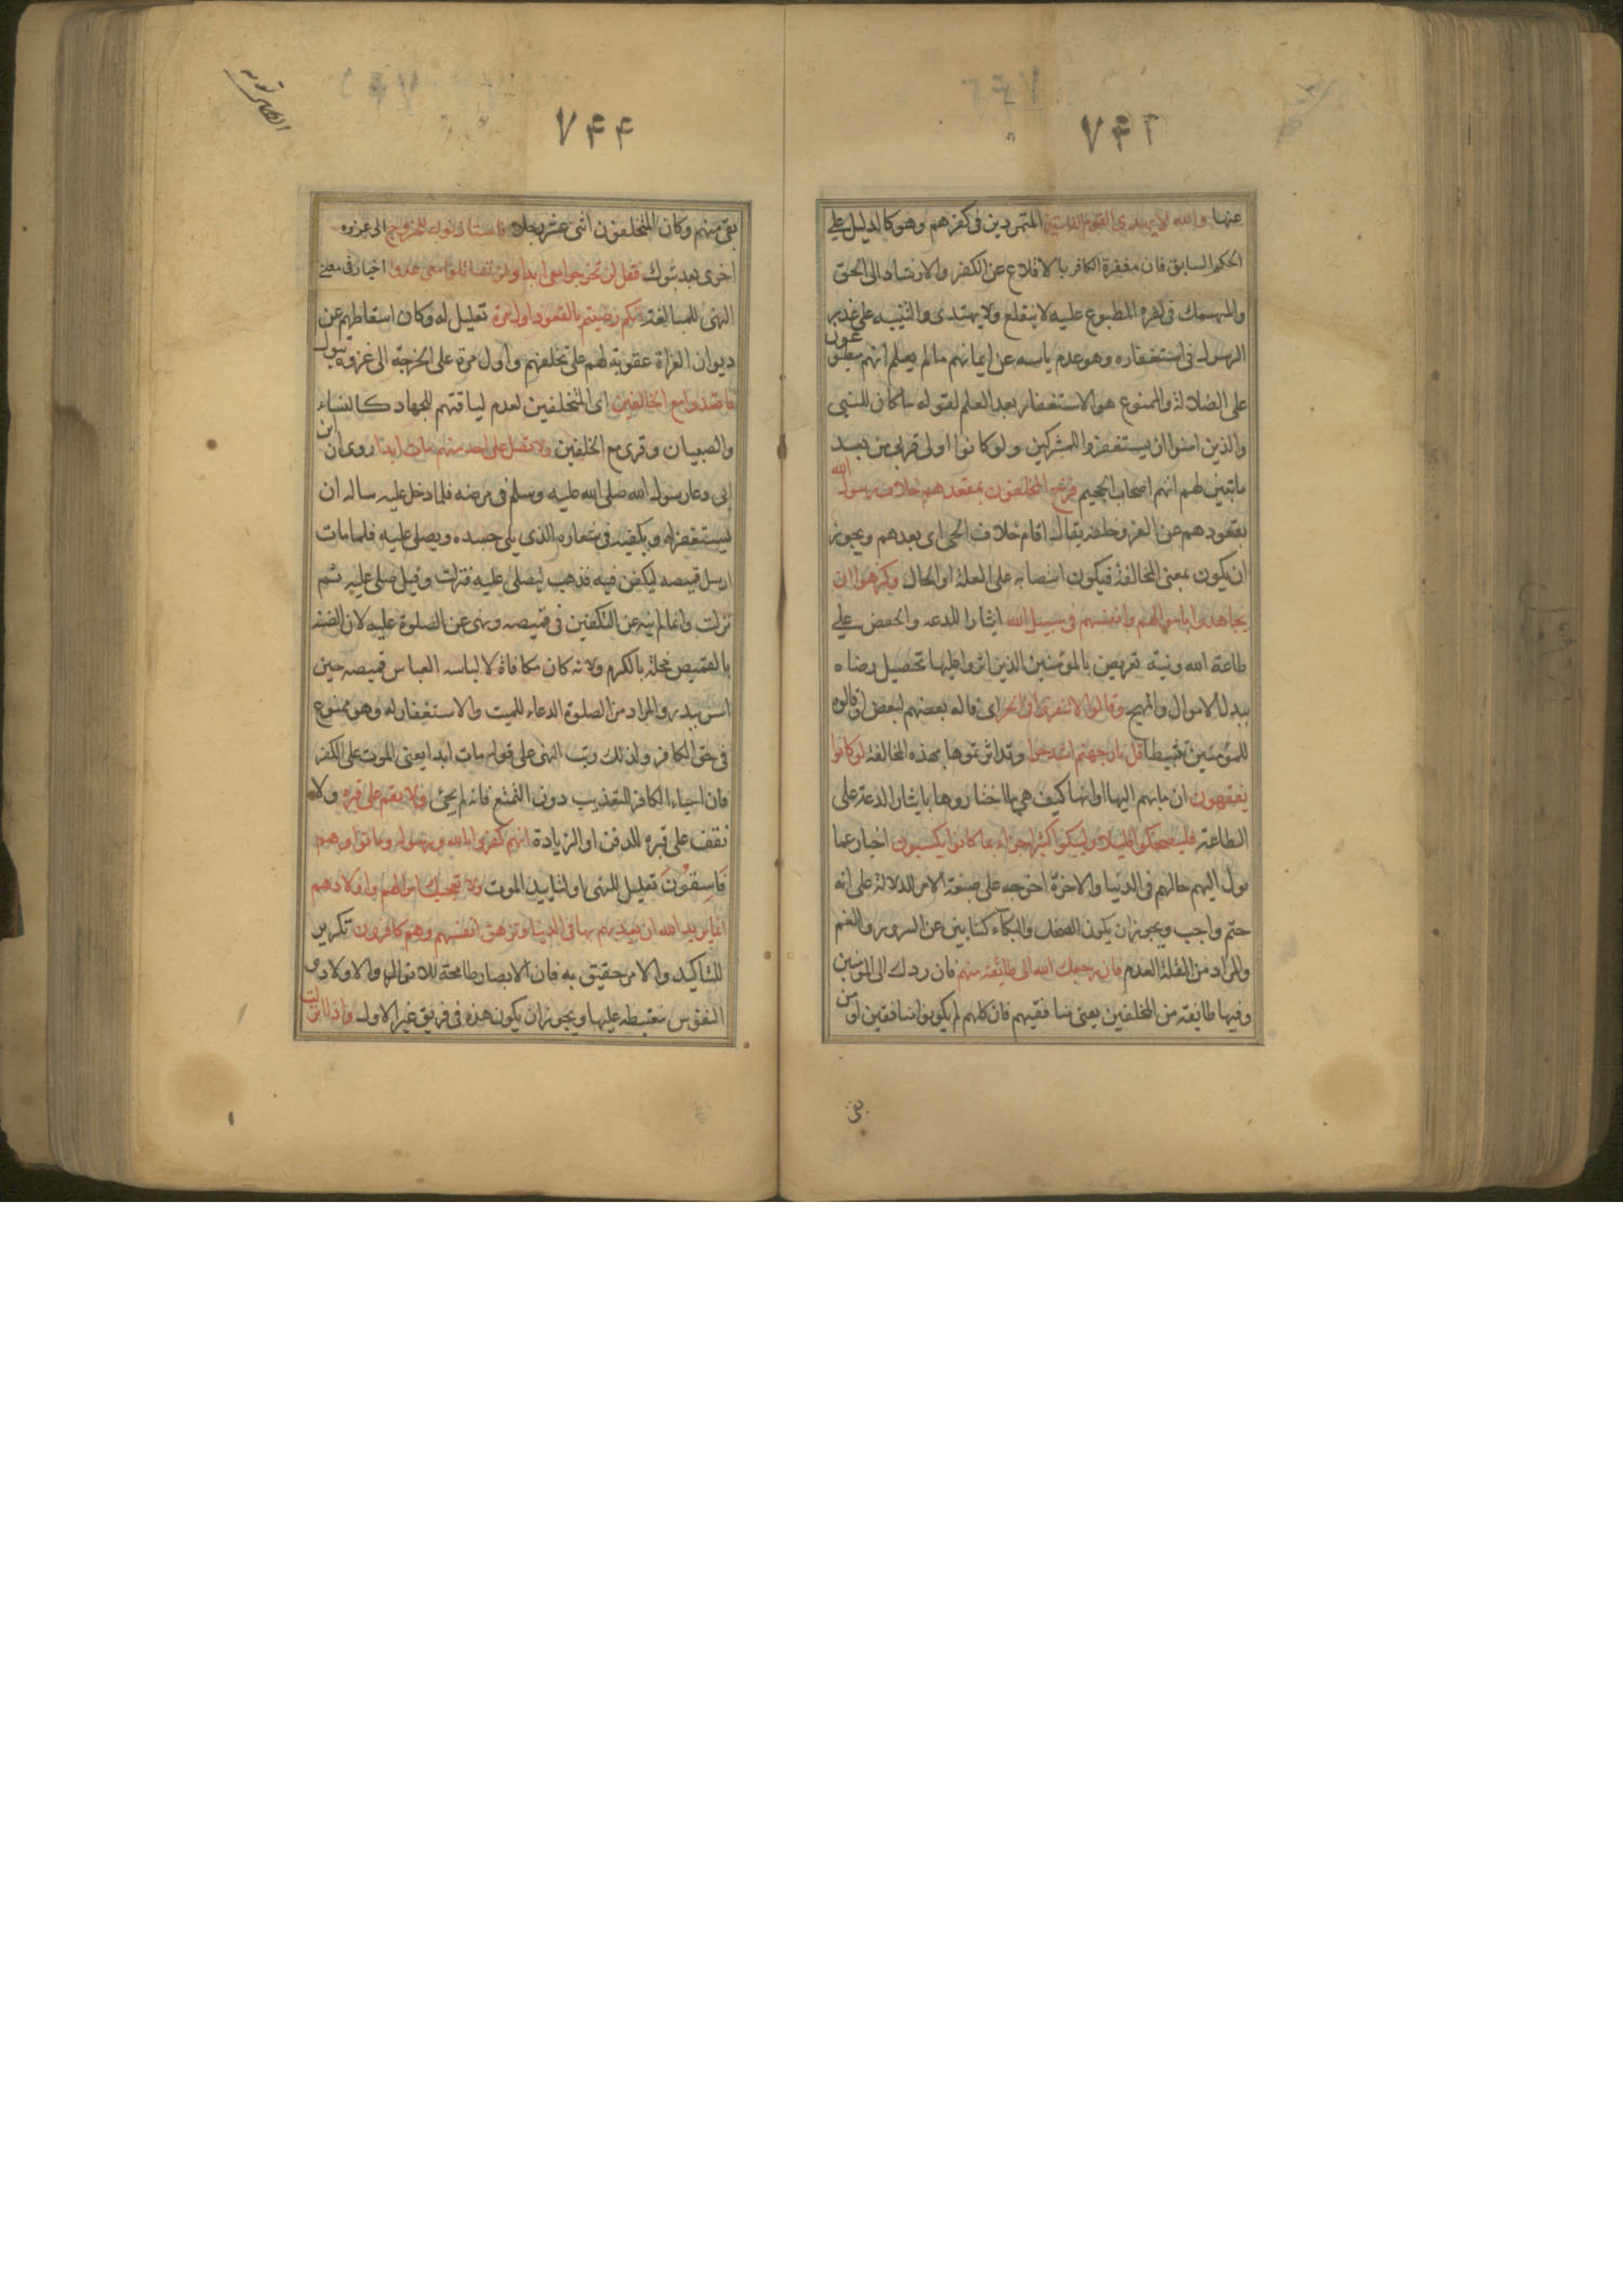 ٧٤٢
عنها والله لا يهدى القوم الفاسقين المتمردين فى كفرهم وهو كالدليل على
الحكم السابق فان مغفرة الكافر بالاقلاع عن الكفر والارشاد الى الحق
والمنهمك فى كفره المطبوع عليه لا ينقلع ولا يهتدى والتنبيه على عذر
الرسول فى استغفاره وهو عدم ياسه عن ايمانهم مالم يعلم انهم مطبوعون
على الضلالة والممنوع هو الاستغفار بعد العلم لقوله ماكان للنبى
والذين امنوا ان يستغفروا للمشركين ولو كانوا اولى قربى من بعد
ما تبين لهم انهم اصحاب الجحيم فرح المخلفون بمقعدهم خلاف رسول الله
بقعودهم عن الغزو خلفه يقال اقام خلاف الحى اى بعدهم ويجوز
ان يكون بمعنى المخالفة فيكون انتصابه على العلة او الحال وكرهوا ان
يجاهدوا باموالهم وانفسهم فى سبيل الله ايثارا للدعه والخفض على
طاعة الله وفيه تعريض بالمؤمنين الذين اثروا عليها تحصيل رضاه
ببذل الاموال والمهج وقالوا لا تنفروا فى الحر اى قاله بعضهم لبعض او قالوه
للمؤمنين تثبيطا قل نار جهنم اشد حرا وقد اثرتموها بهذه المخالفة لو كانوا
يفقهون ان مابهم اليها او انها كيف هى ما اختاروها بايثار الدعة على
الطاعة فليضحكوا قليلا وليبكوا كثيرا جزاء بما كانوا يكسبون اخبار عما
يول اليهم حالهم فى الدنيا والاخرة اخرجه على صيغة الامر للدلالة على انه
حتم واجب ويجوز ان يكون الضحك والبكاء كنايتين عن السرور والغم
والمراد من القلة العدم فان رجعك الله الى طائفة منهم فان ردك الى المؤمنين
وفيها طايفة من المخلفين يعنى منافقيهم فان كلهم لم يكونوا منافقين او من
بقى
٧٤٤
بقى منهم وكان المتخلفون اثنى عشر رجلا فاستاذنوك للخروج الى غزوه
اخرى بعد تبوك فقل لن تخرجوا معى ابدا ولن تقاتلوا معى عدوا اخبار فى معنى
النهى للمبالغة انكم رضيتم بالقعود اول مرة تعليل له وكان اسقاطهم عن
ديوان الغزاة عقوبة لهم على تخلفهم واول مرة على الخرجة الى غزوه تبوك
فاقعدوا مع الخالفين اى المتخلفين لعدم لياقتهم للجهاد كالنساء
والصبيان وقرى مع الخلفين ولا تصل على احد منهم مات ابدا روى ان ابن
ابى دعا رسول الله صلى الله عليه وسلم فى مرضه فلما دخل عليه ساله ان
يستغفر له ويكفنه فى شعاره الذى يلى جسده ويصلى عليه فلما مات
ارسل قميصه ليكفن فيه فذهب ليصلى عليه فنزلت وقيل صلى عليه ثم
نزلت وانما لم ينه عن التكفين فى قميصه ونهى عن الصلوة عليه لان الضنة
بالقميص مخلة بالكرم ولانه كان مكافاة لالباسه العباس قميصه حين
اسر ببدر والمراد من الصلوة الدعاء للميت والاستغفار له وهو ممنوع
فى حق الكافر ولذلك رتب النهى على قوله مات ابدا يعنى الموت على الكفر
فان احياء الكافر للتعذيب دون التمتع فانه لم يحى ولا تقم على قبره ولا
تقف على قبره للدفن او الزيادة انهم كفروا بالله ورسوله وماتوا وهم
فاسقون تعليل للنهى او لتابيد الموت ولا تعجبك اموالهم واولادهم
انما يريد الله ان يعذبهم بها فى الدنيا وتزهق انفسهم وهم كافرون تكرير
للتاكيد والامر حقيق به فان الابصار طامحة للاموال والاولاد و
النفوس مغتبطه عليها ويجوز ان يكون هذه فى فريق غير الاول واذا انزلت